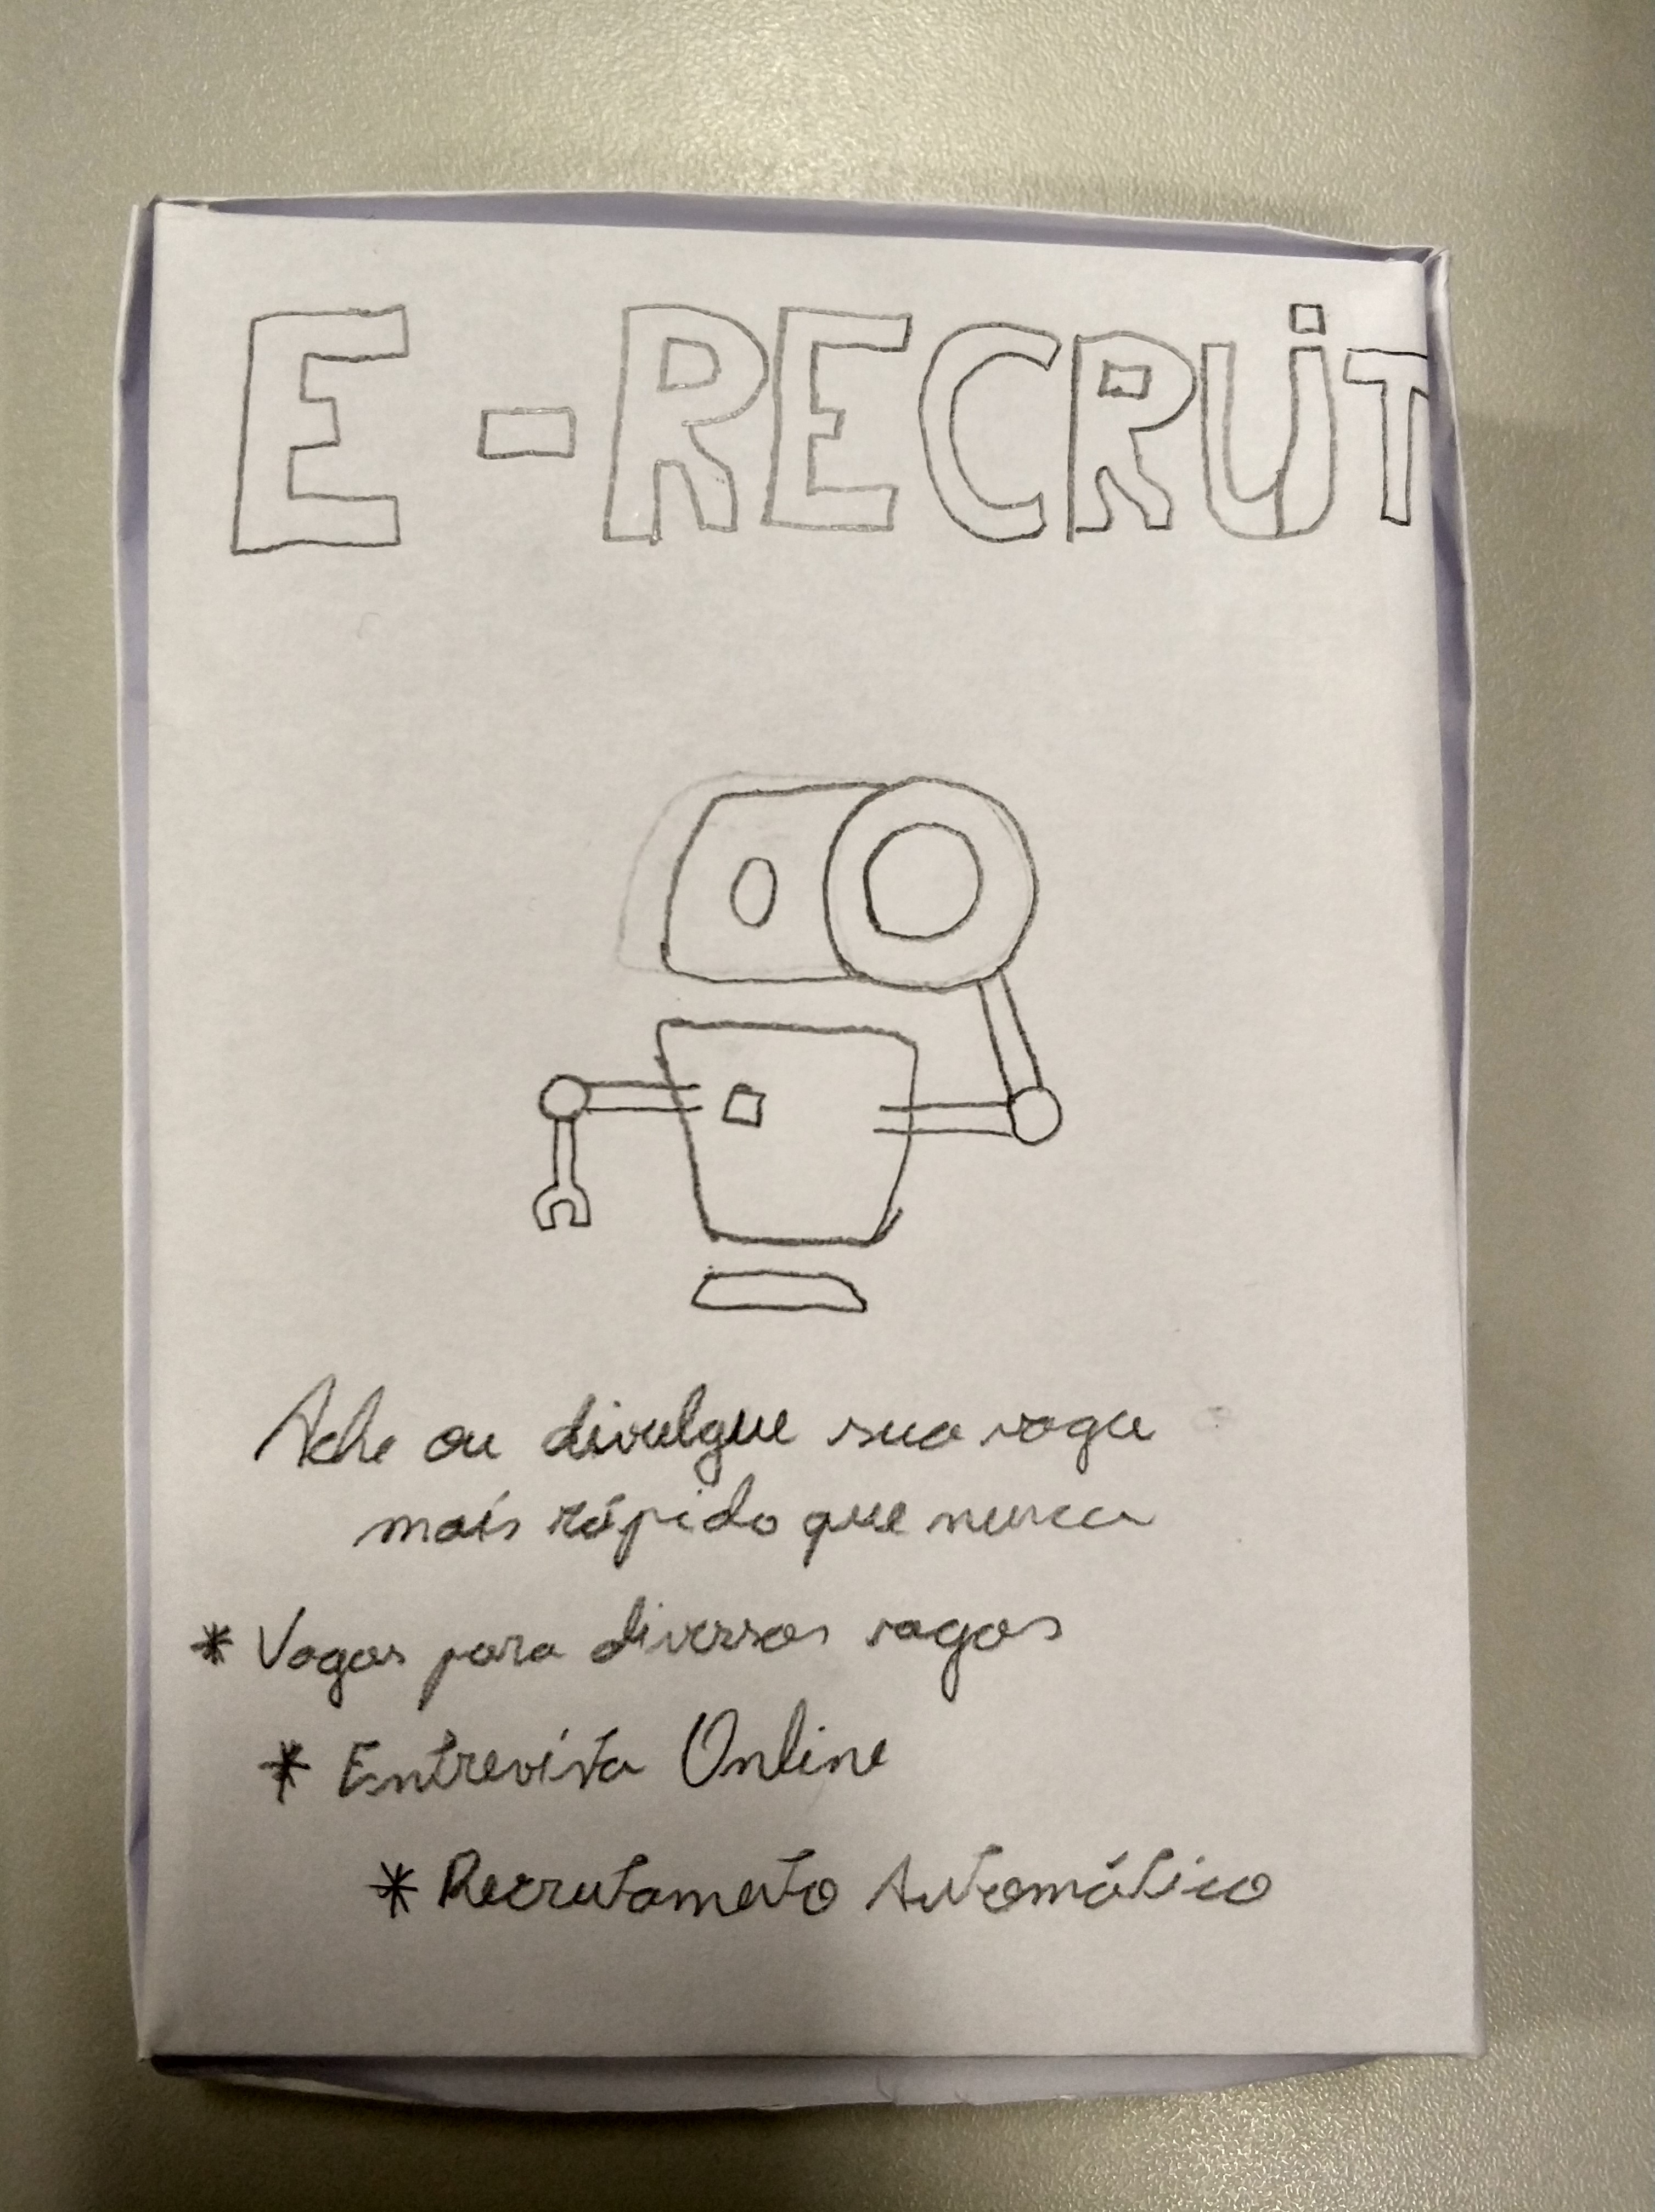 E-RECRUiT
Ache ou divulgue sua vaga
mais rápido que nunca
* Vagas para diversas vagas
* Entrevista Online
* Recrutameto Automático